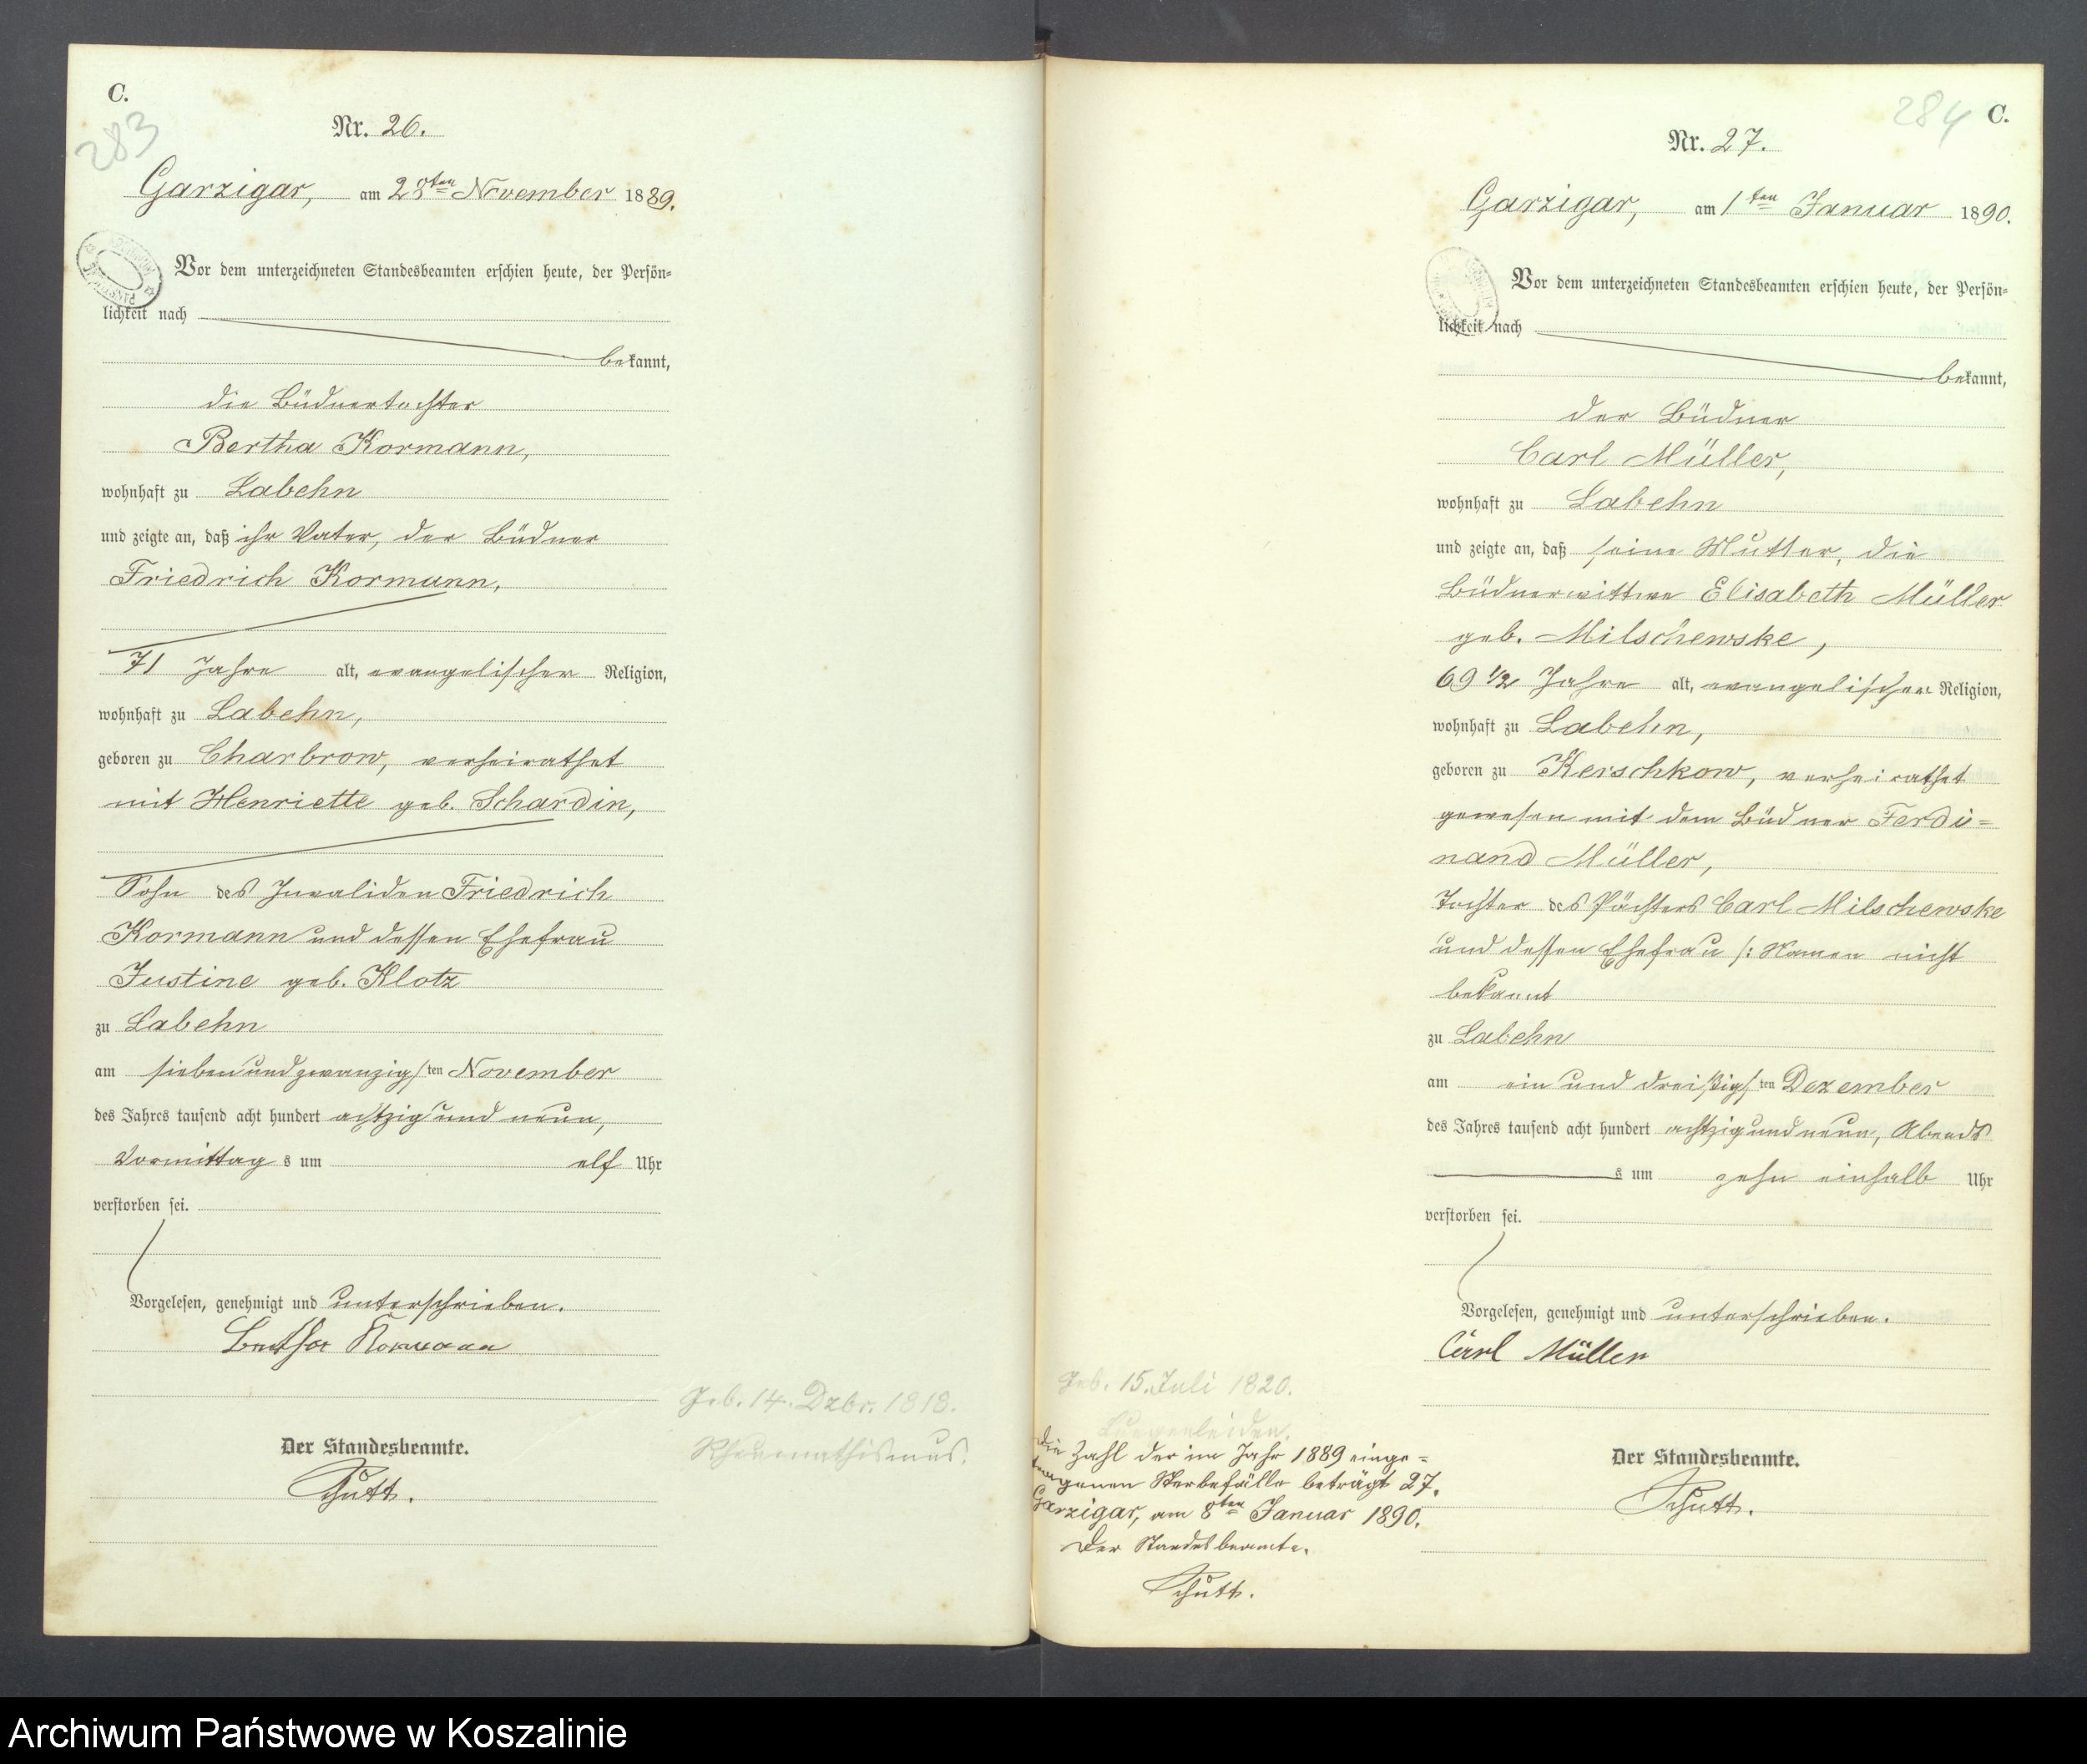 C.
283
Nr. 26.
Garzigar, am 28ten November 1889.
Vor dem unterzeichneten Standesbeamten erschien heute, der Persön=
lichkeit nach
bekannt,
die Büdnertochter
Bertha Kormann,
wohnhaft zu Labehn
und zeigte an, daß ihr Vater, der Büdner
Friedrich Kormann,
71 Jahre alt, evangelischer Religion,
wohnhaft zu Labehn,
geboren zu Charbrow, verheirathet
mit Henriette geb. Schardin,
Sohn des Invaliden Friedrich
Kormann und dessen Ehefrau
Justine geb. Klotz
zu Labehn
am siebenundzwanzigsten November
des Jahres tausend acht hundert achtzig und neun,
Vormittags um elf Uhr
verstorben sei.
Vorgelesen, genehmigt und unterschrieben.
Bertha Kormann
Der Standesbeamte.
Schutt.
Geb. 14. Dzbr. 1818.
Rheumathismus.
284 C.
Nr. 27.
Garzigar, am 1ten Januar 1890.
Vor dem unterzeichneten Standesbeamten erschien heute, der Persön=
lichkeit nach
bekannt,
der Büdner
Carl Müller,
wohnhaft zu Labehn
und zeigte an, daß seine Mutter, die
Büdnerwittwe Elisabeth Müller
geb. Milschewske,
69 1/2 Jahre alt, evangelischer Religion,
wohnhaft zu Labehn,
geboren zu Kerschkow, verheirathet
gewesen mit dem Büdner Ferdi=
nand Müller,
Tochter des Pächters Carl Milschewske
und dessen Ehefrau /: Namen nicht
bekannt
zu Labehn
am ein und dreißigsten Dezember
des Jahres tausend acht hundert achtzig und neun, Abends
s um zehn einhalb Uhr
verstorben sei.
Vorgelesen, genehmigt und unterschrieben.
Carl Müller
Der Standesbeamte.
Schutt.
Geb. 15. Juli 1820.
Lungenleiden.
Die Zahl der im Jahr 1889 einge=
tragenen Sterbefälle beträgt 27.
Garzigar, am 8ten Januar 1890.
Der Standesbeamte.
Schutt.
Archiwum Państwowe w Koszalinie